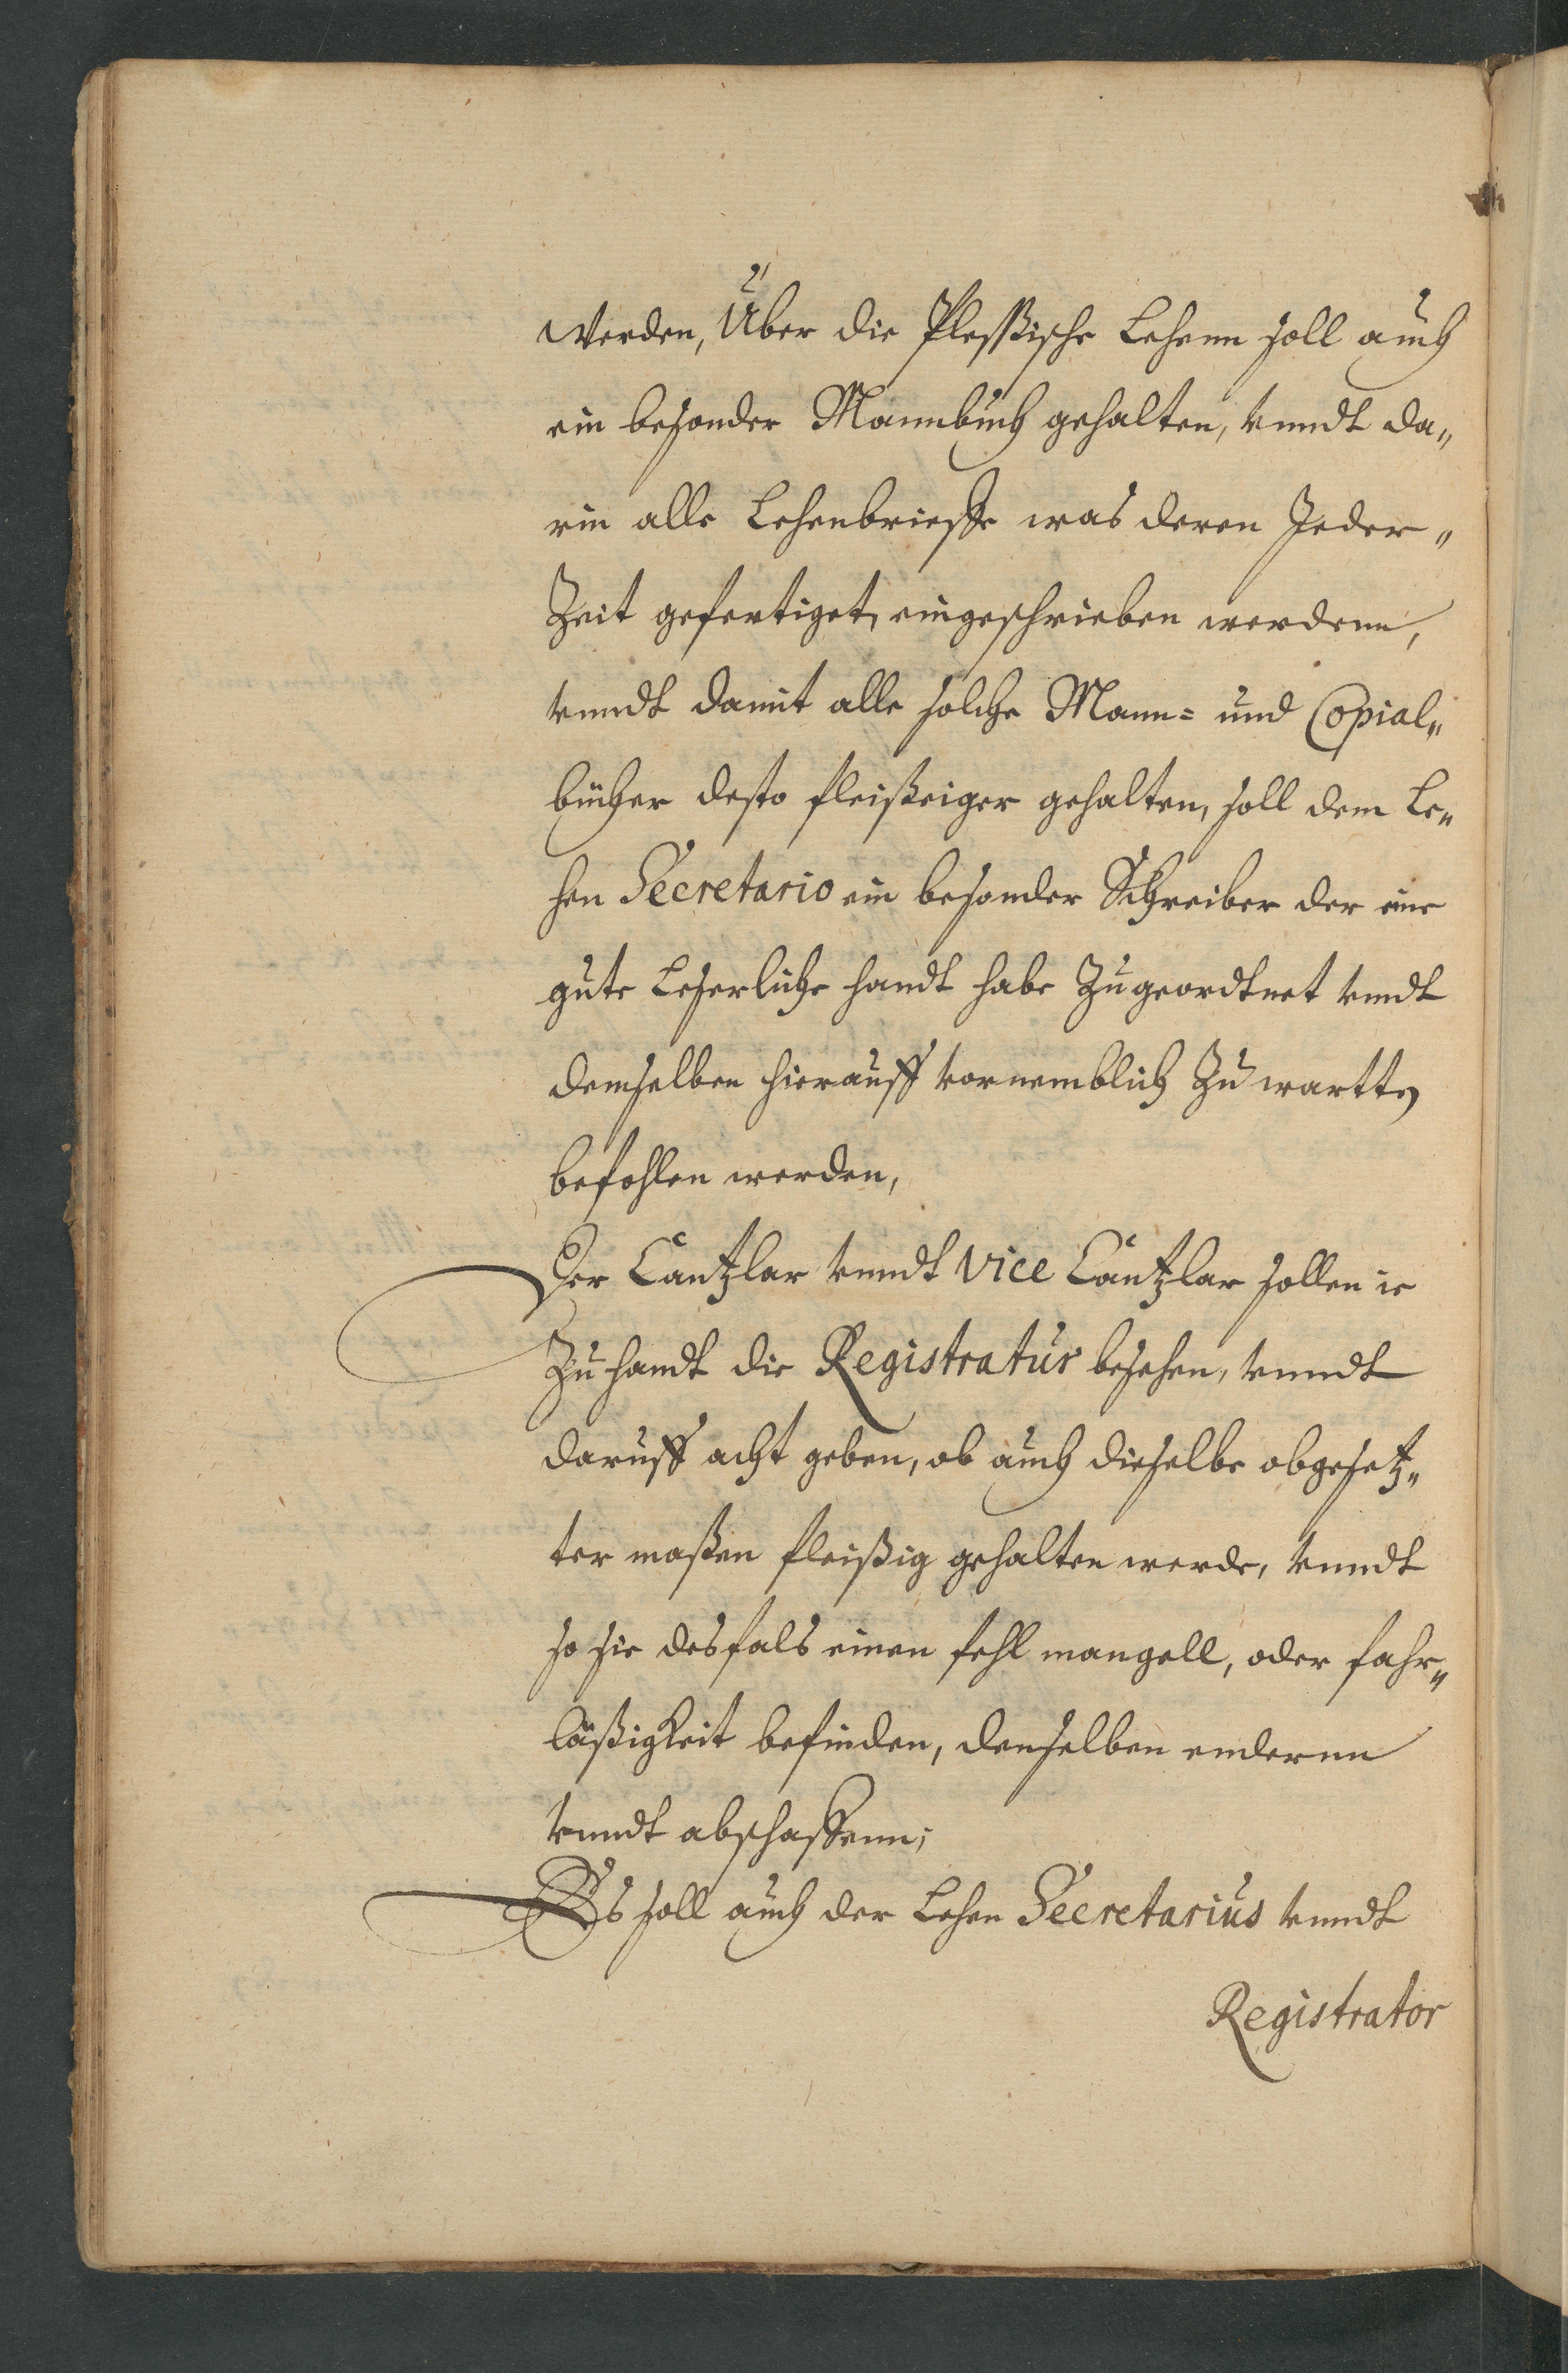 Werden, Über die Plessische Lehenn soll auch
ein besonder Mannbuch gehalten, vnndt da„
rin alle Lehenbrieffe was deren Jeder„
Zeit gefertiget, eingeschrieben werdenn,
vnndt damit alle solche Mann= und Copial„
bücher desto fleißeiger gehalten, soll dem Le„
hen Secretario ein besonder Schreiber der eine
gute Leserliche handt habe Zugeordtnet vndt
demselben hierauff vornemblich Zu wartten
befohlen werden,
Der Cantzlar vnndt Vice Cantzlar sollen ie
Zu handt die Registratur besehen, vnndt
daruff acht geben, ob auch dieselbe obgesetz„
ter maßen fleißig gehalten werde, vnndt
so sie desfals einen fehl mangell, oder fahr„
läßigkeit befinden, denselben enderenn
vnndt abschaffenn;
Es soll auch der Lehen Secretarius vnndt
Registrator